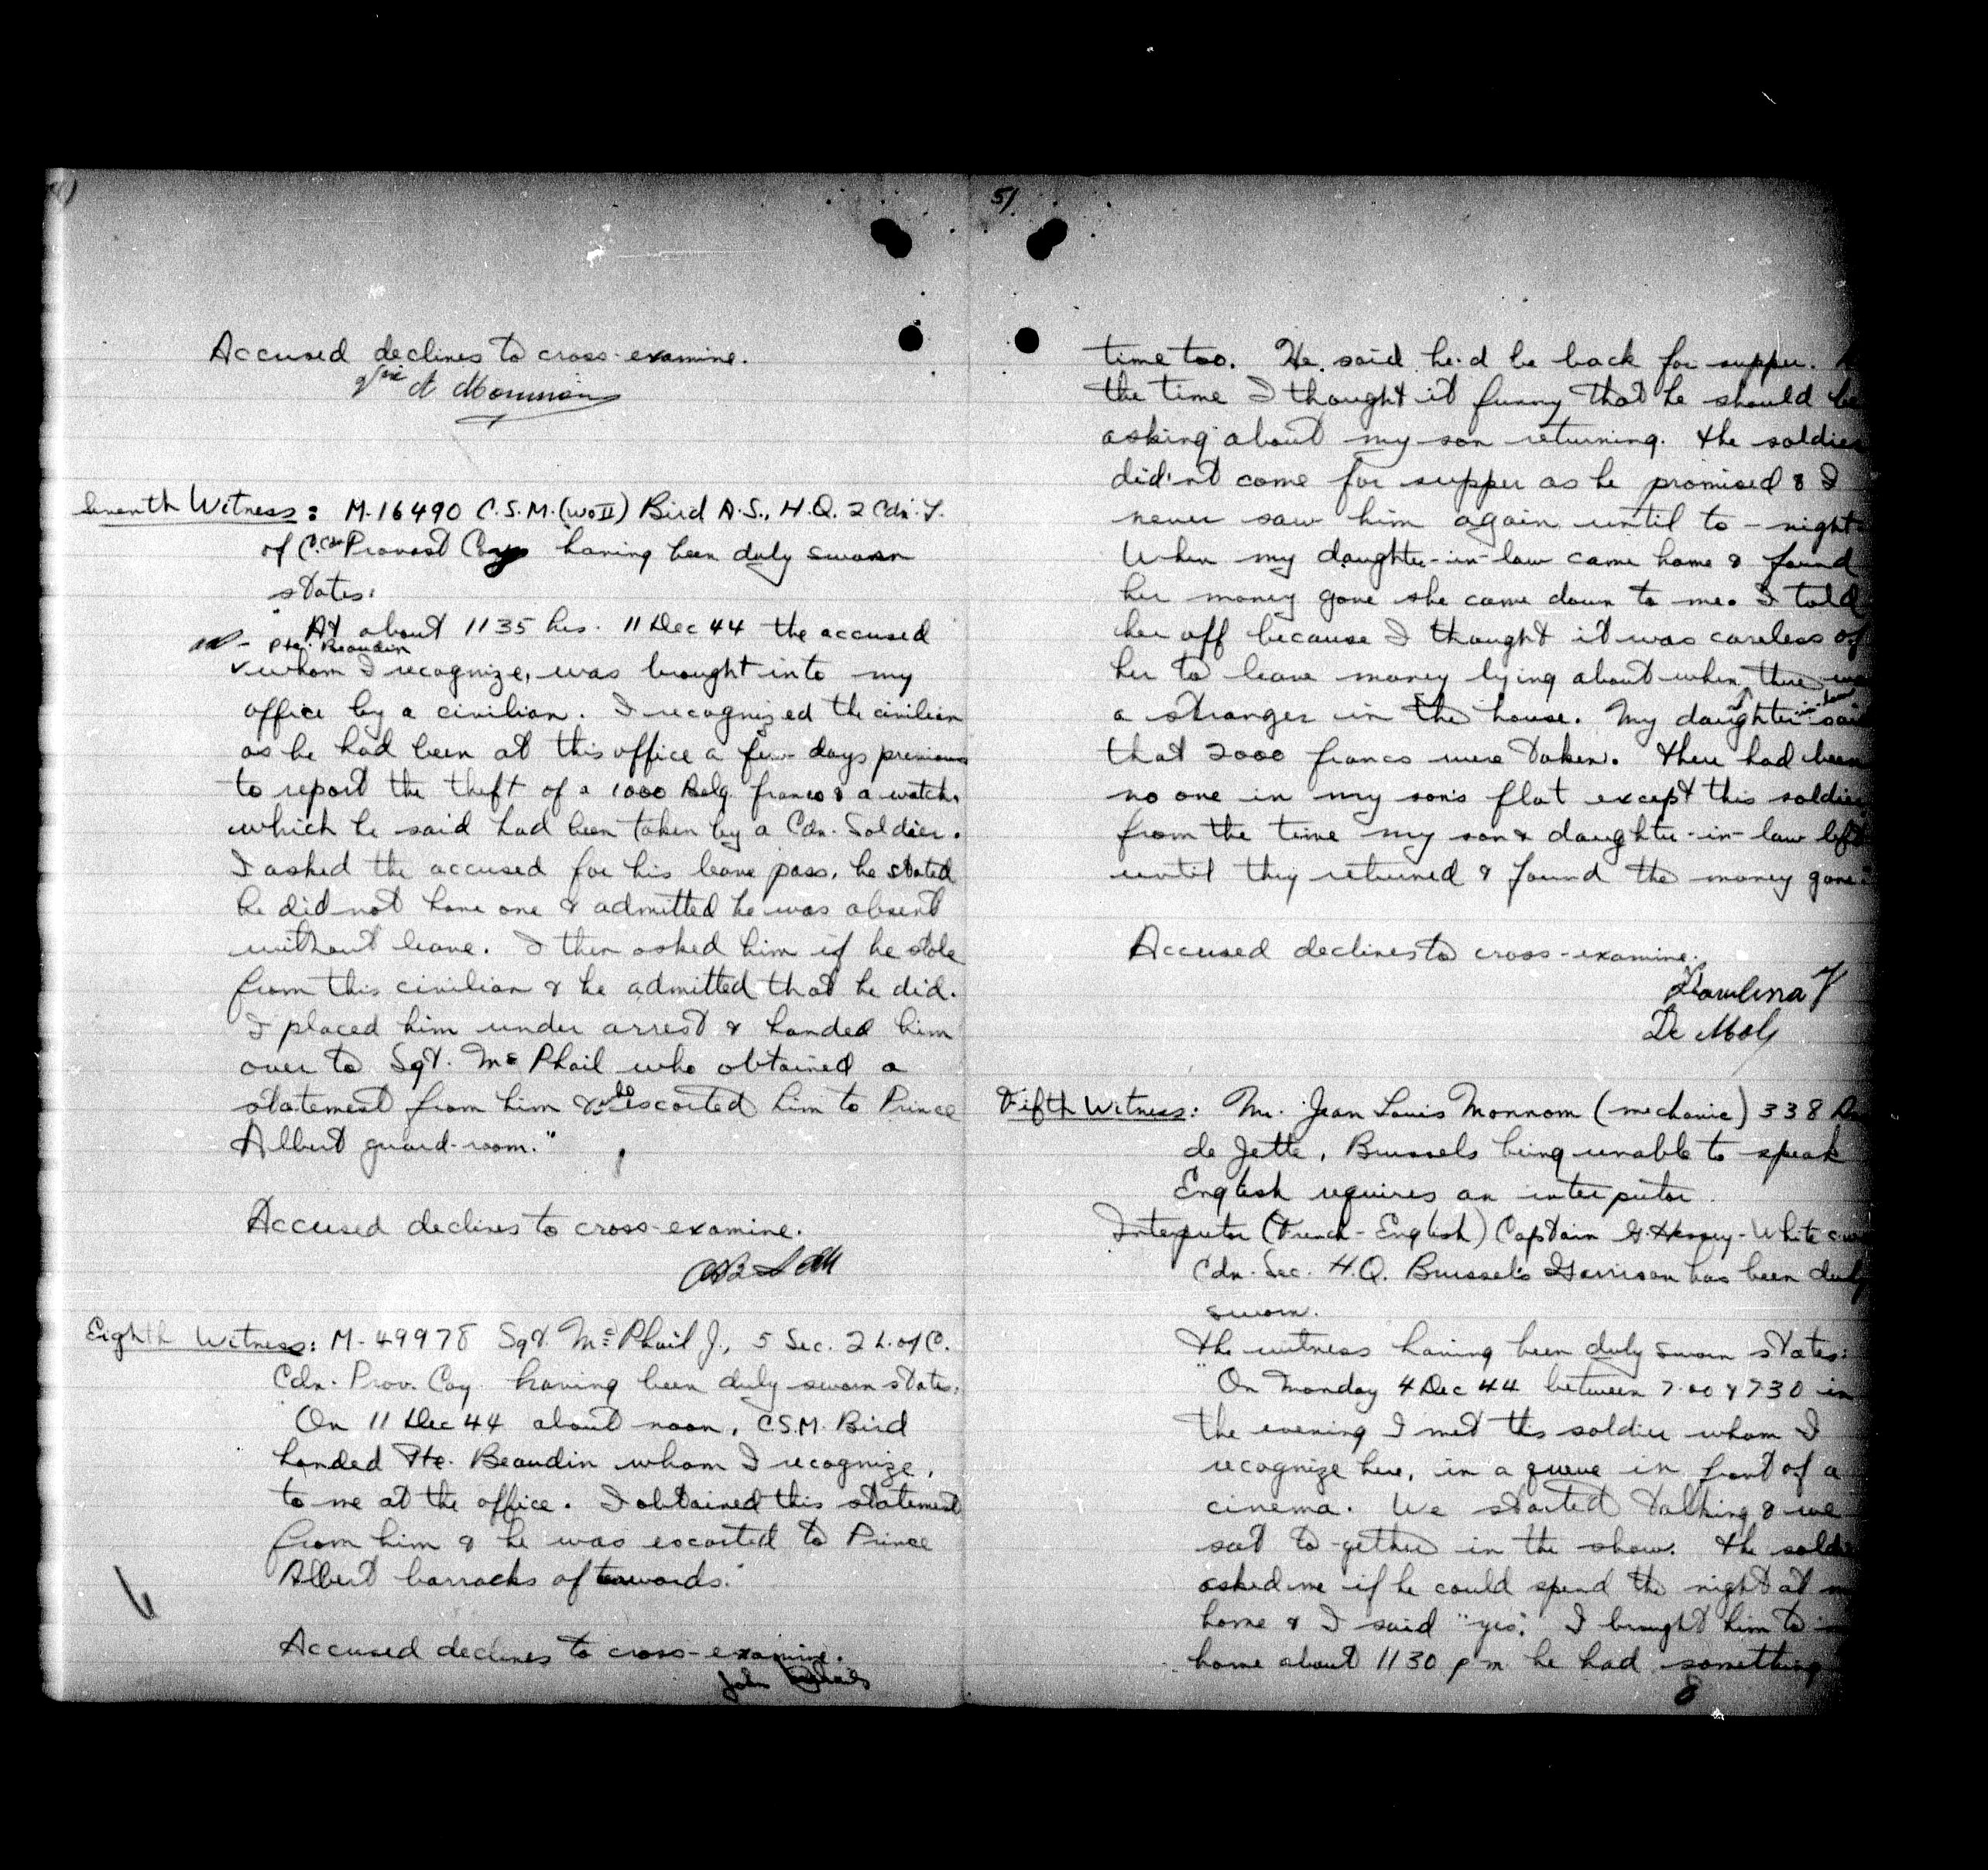 Accused declines to cross-examine.
Seventh Witness: M-16490 C.S.M.(WOII) Bird A.S., H.Q. 2 Cdn. L.
of C. Cdn Provost Coy having been duly sworn
states:
At about 1135 hrs. 11 Dec 44 the accused
Pte. Beaudin
whom I recognize, was brought into my
office by a civilian. I recognized the civilian
as he had been at this office a few days previous
to report the theft of a 1000 Belg. francs & a watch,
which he said had been taken by a Cdn. Soldier.
I asked the accused for his leave pass, he stated
he did not have one & admitted he was absent
without leave. I then asked him if he stole
from this civilian & he admitted that he did.
I placed him under arrest & handed him
over to Sgt. McPhail who obtained a
statement from him & who escorted him to Prince
Albert guard-room."
Accused declines to cross-examine.
Eighth Witness: M-49978 Sgt McPhail J., 5 Sec. 2 L. of C.
Cdn. Prov. Coy. having been duly sworn states,
"On 11 Dec 44 about noon, C.S.M. Bird
handed Pte. Beaudin whom I recognize,
to me at the office. I obtained this statement
from him & he was escorted to Prince
Albert barracks afterwards."
Accused declines to cross-examine.
John
51
time too. He said he'd be back for supper.
the time I thought it funny that he should be
asking about my son returning. The soldier
did'nt come for supper as he promised & I
never saw him again until to-night.
When my daughter-in-law came home & found
her money gone she came down to me. I told
her off because I thought it was careless of
her to leave money lying about when there was
a stranger in the house. My daughter-in-law said
that 2000 francs were taken. There had been
no one in my son's flat except this soldier
from the time my son & daughter-in-law left
until they returned & found the money gone."
Accused declines to cross-examine.
Paulina V
De Mol
Fifth Witness: Mr. Jean Louis Monnom (mechanic) 338
de Jette, Brussels being unable to speak
English requires an interputor.
Interputor (French-English) Captain G. Hersey-White
Cdn. Sec. H.Q. Brussels Garrison has been duly
sworn.
The witness having been duly sworn states:
"On Monday 4 Dec 44 between 7.00 & 730 in
the evening I met this soldier whom I
recognize here, in a queue in front of a
cinema. We started talking & we
sat to-gether in the show. The soldier
asked me if he could spend the night at
home & I said "yes". I brought him to
home about 1130 pm he had something
8